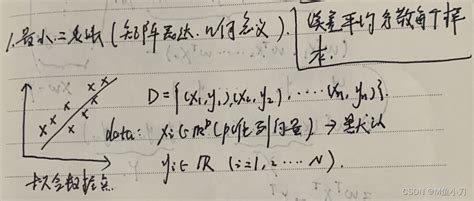 1.最小二乘法(矩阵表达.几何意义)
误差平均分散每个样
本.
D={(x₁,y₁),(x₂,y₂),......(xₙ,yₙ)}.
data: xᵢ∈ℝᵖ(p维列向量)→默认
yᵢ∈ℝ (i=1,2.....N).
拟合数据点
CSDN @M鱼小刀